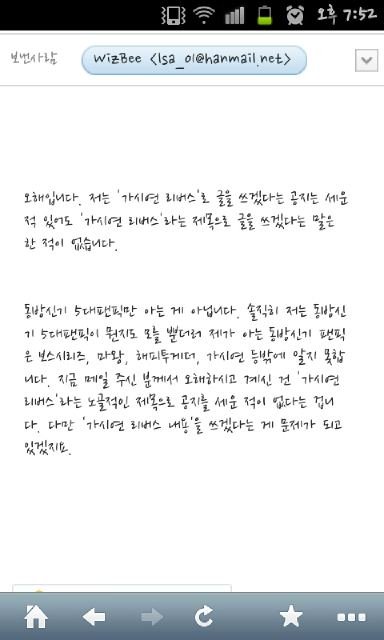 오후 7:52
보낸사람
WizBee <lsa_01@hanmail.net>
오해입니다. 저는 '가시연 리버스'로 글을 쓰겠다는 공지는 세운
적 있어도 '가시연 리버스'라는 제목으로 글을 쓰겠다는 말은
한 적이 없습니다.
동방신기 5대팬픽만 아는 게 아닙니다. 솔직히 저는 동방신
기 5대팬픽이 뭔지도 모를 뿐더러 제가 아는 동방신기 팬픽
은 보스시리즈, 마왕, 해피투게더, 가시연 등밖에 알지 못합
니다. 지금 메일 주신 분께서 오해하시고 계신 건 '가시연
리버스'라는 노골적인 제목으로 공지를 세운 적이 없다는 겁니
다. 다만 '가시연 리버스 내용'을 쓰겠다는 게 문제가 되고
있겠지요.